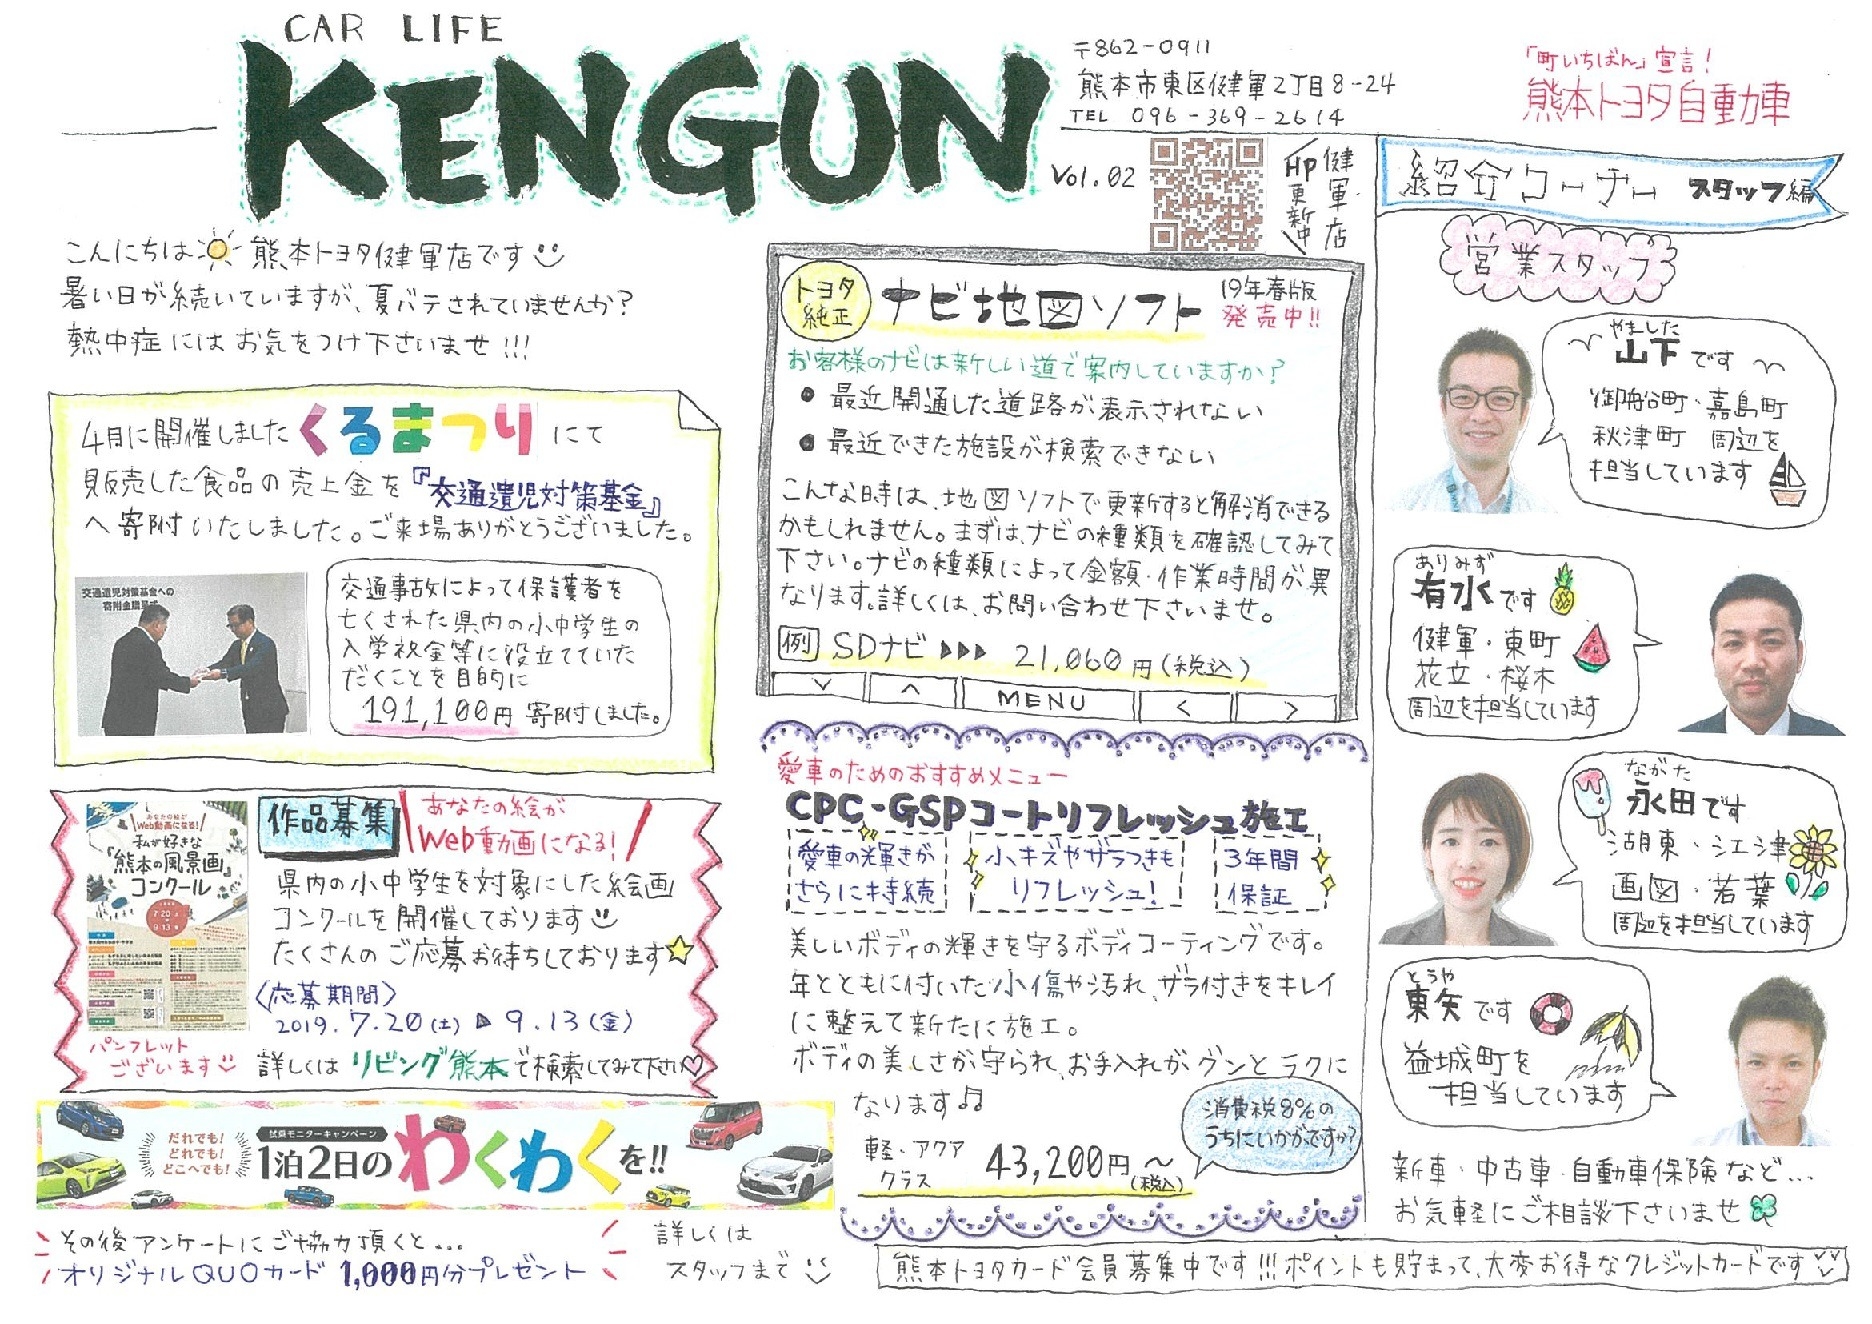 CAR LIFE
KENGUN
Vol.02
〒862-0911
熊本市東区健軍2丁目8-24
TEL 096-369-2614
健軍店
HP更新中
「町いちばん」宣言!
熊本トヨタ自動車
こんにちは 熊本トヨタ健軍店です
暑い日が続いていますが、夏バテされていませんか?
熱中症にはお気をつけ下さいませ!!!
4月に開催しました くるまつり にて
販売した食品の売上金を『交通遺児対策基金』
へ寄附いたしました。ご来場ありがとうございました。
交通遺児対策基金への
寄附金贈呈式
交通事故によって保護者を
亡くされた県内の小中学生の
入学祝金等に役立てていた
だくことを目的に
191,100円 寄附しました。
あなたの絵が
Web動画になる!
私が好きな
「熊本の風景画」
コンクール
7.20
9.13
パンフレット
ございます
作品募集
あなたの絵が
Web動画になる!
県内の小中学生を対象にした絵画
コンクールを開催しております
たくさんのご応募お待ちしております
〈応募期間〉
2019.7.20(土)▶9.13(金)
詳しくはリビング熊本で検索してみて下さい♡
だれでも!
どれでも!
どこへでも!
試乗モニターキャンペーン
1泊2日のわくわくを!!
その後アンケートにご協力頂くと...
オリジナルQUOカード 1,000円分プレゼント
詳しくは
スタッフまで
トヨタ
純正
ナビ地図ソフト
19年春版
発売中!!
お客様のナビは新しい道で案内していますか?
● 最近開通した道路が表示されない
● 最近できた施設が検索できない
こんな時は、地図ソフトで更新すると解消できる
かもしれません。まずは、ナビの種類を確認してみて
下さい。ナビの種類によって金額・作業時間が異
なります。詳しくは、お問い合わせ下さいませ。
例 SDナビ ▶▶▶ 21,060円(税込)
MENU
愛車のためのおすすめメニュー
CPC-GSPコートリフレッシュ施工
愛車の輝きが
さらに持続
小キズやザラつきも
リフレッシュ!
3年間
保証
美しいボディの輝きを守るボディコーティングです。
年とともに付いた小傷や汚れ、ザラ付きをキレイ
に整えて新たに施工。
ボディの美しさが守られ、お手入れが、グンとラクに
なります♫
軽・アクア
クラス
43,200円〜
(税込)
消費税8%の
うちにいかがですか?
紹介コーナー スタッフ編
営業スタッフ
やました
山下です
御船町・嘉島町
秋津町 周辺を
担当しています
ありみず
有水です
健軍・東町
花立・桜木
周辺を担当しています
ながた
永田です
湖東・江津
画図・若葉
周辺を担当しています
とうや
東矢です
益城町を
担当しています
新車・中古車・自動車保険など...
お気軽にご相談下さいませ
熊本トヨタカード会員募集中です!!!ポイントも貯まって、大変お得なクレジットカードです